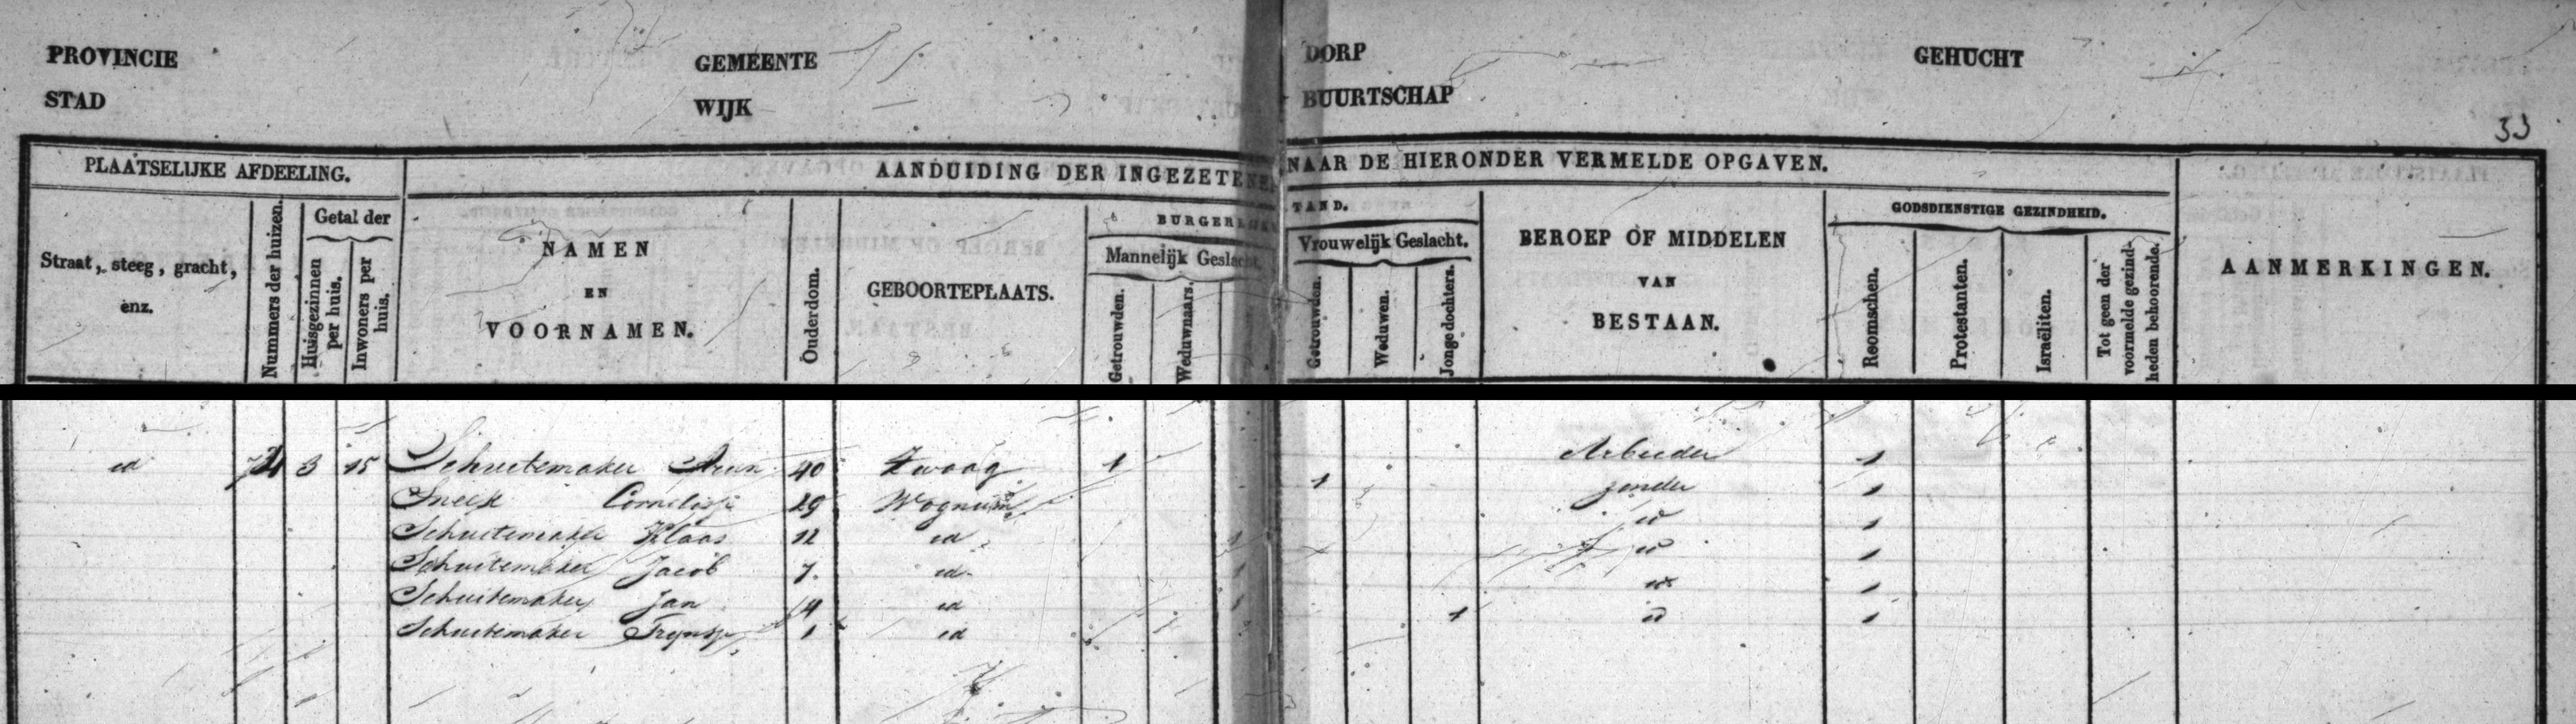 PROVINCIE GEMEENTE DORP GEHUCHT
STAD WIJK BUURTSCHAP
33
PLAATSELIJKE AFDEELING. AANDUIDING DER INGEZETENEN NAAR DE HIERONDER VERMELDE OPGAVEN.
Straat, steeg, gracht, enz.
Nummers der huizen.
Getal der
Huisgezinnen per huis.
Inwoners per huis.
NAMEN
EN
VOORNAMEN.
Ouderdom.
GEBOORTEPLAATS.
BURGERLIJKE STAND.
Mannelijk Geslacht.
Getrouwden.
Weduwnaars.
Vrouwelijk Geslacht.
Getrouwden.
Weduwen.
Jonge dochters.
BEROEP OF MIDDELEN
VAN
BESTAAN.
GODSDIENSTIGE GEZINDHEID.
Roomschen.
Protestanten.
Israëliten.
Tot geen der voormelde gezindheden behoorende.
AANMERKINGEN.
id 3 15 Schuitemaker 40 Zwaag 1 Arbeider 1
Sneek Cornelisje 29 Wognum 1 zonder 1
Schuitemaker Klaas 12 id 1 id 1
Schuitemaker Jacob 7 id 1 id 1
Schuitemaker Jan 4 id 1 id 1
Schuitemaker Tryntje 1 id 1 id 1